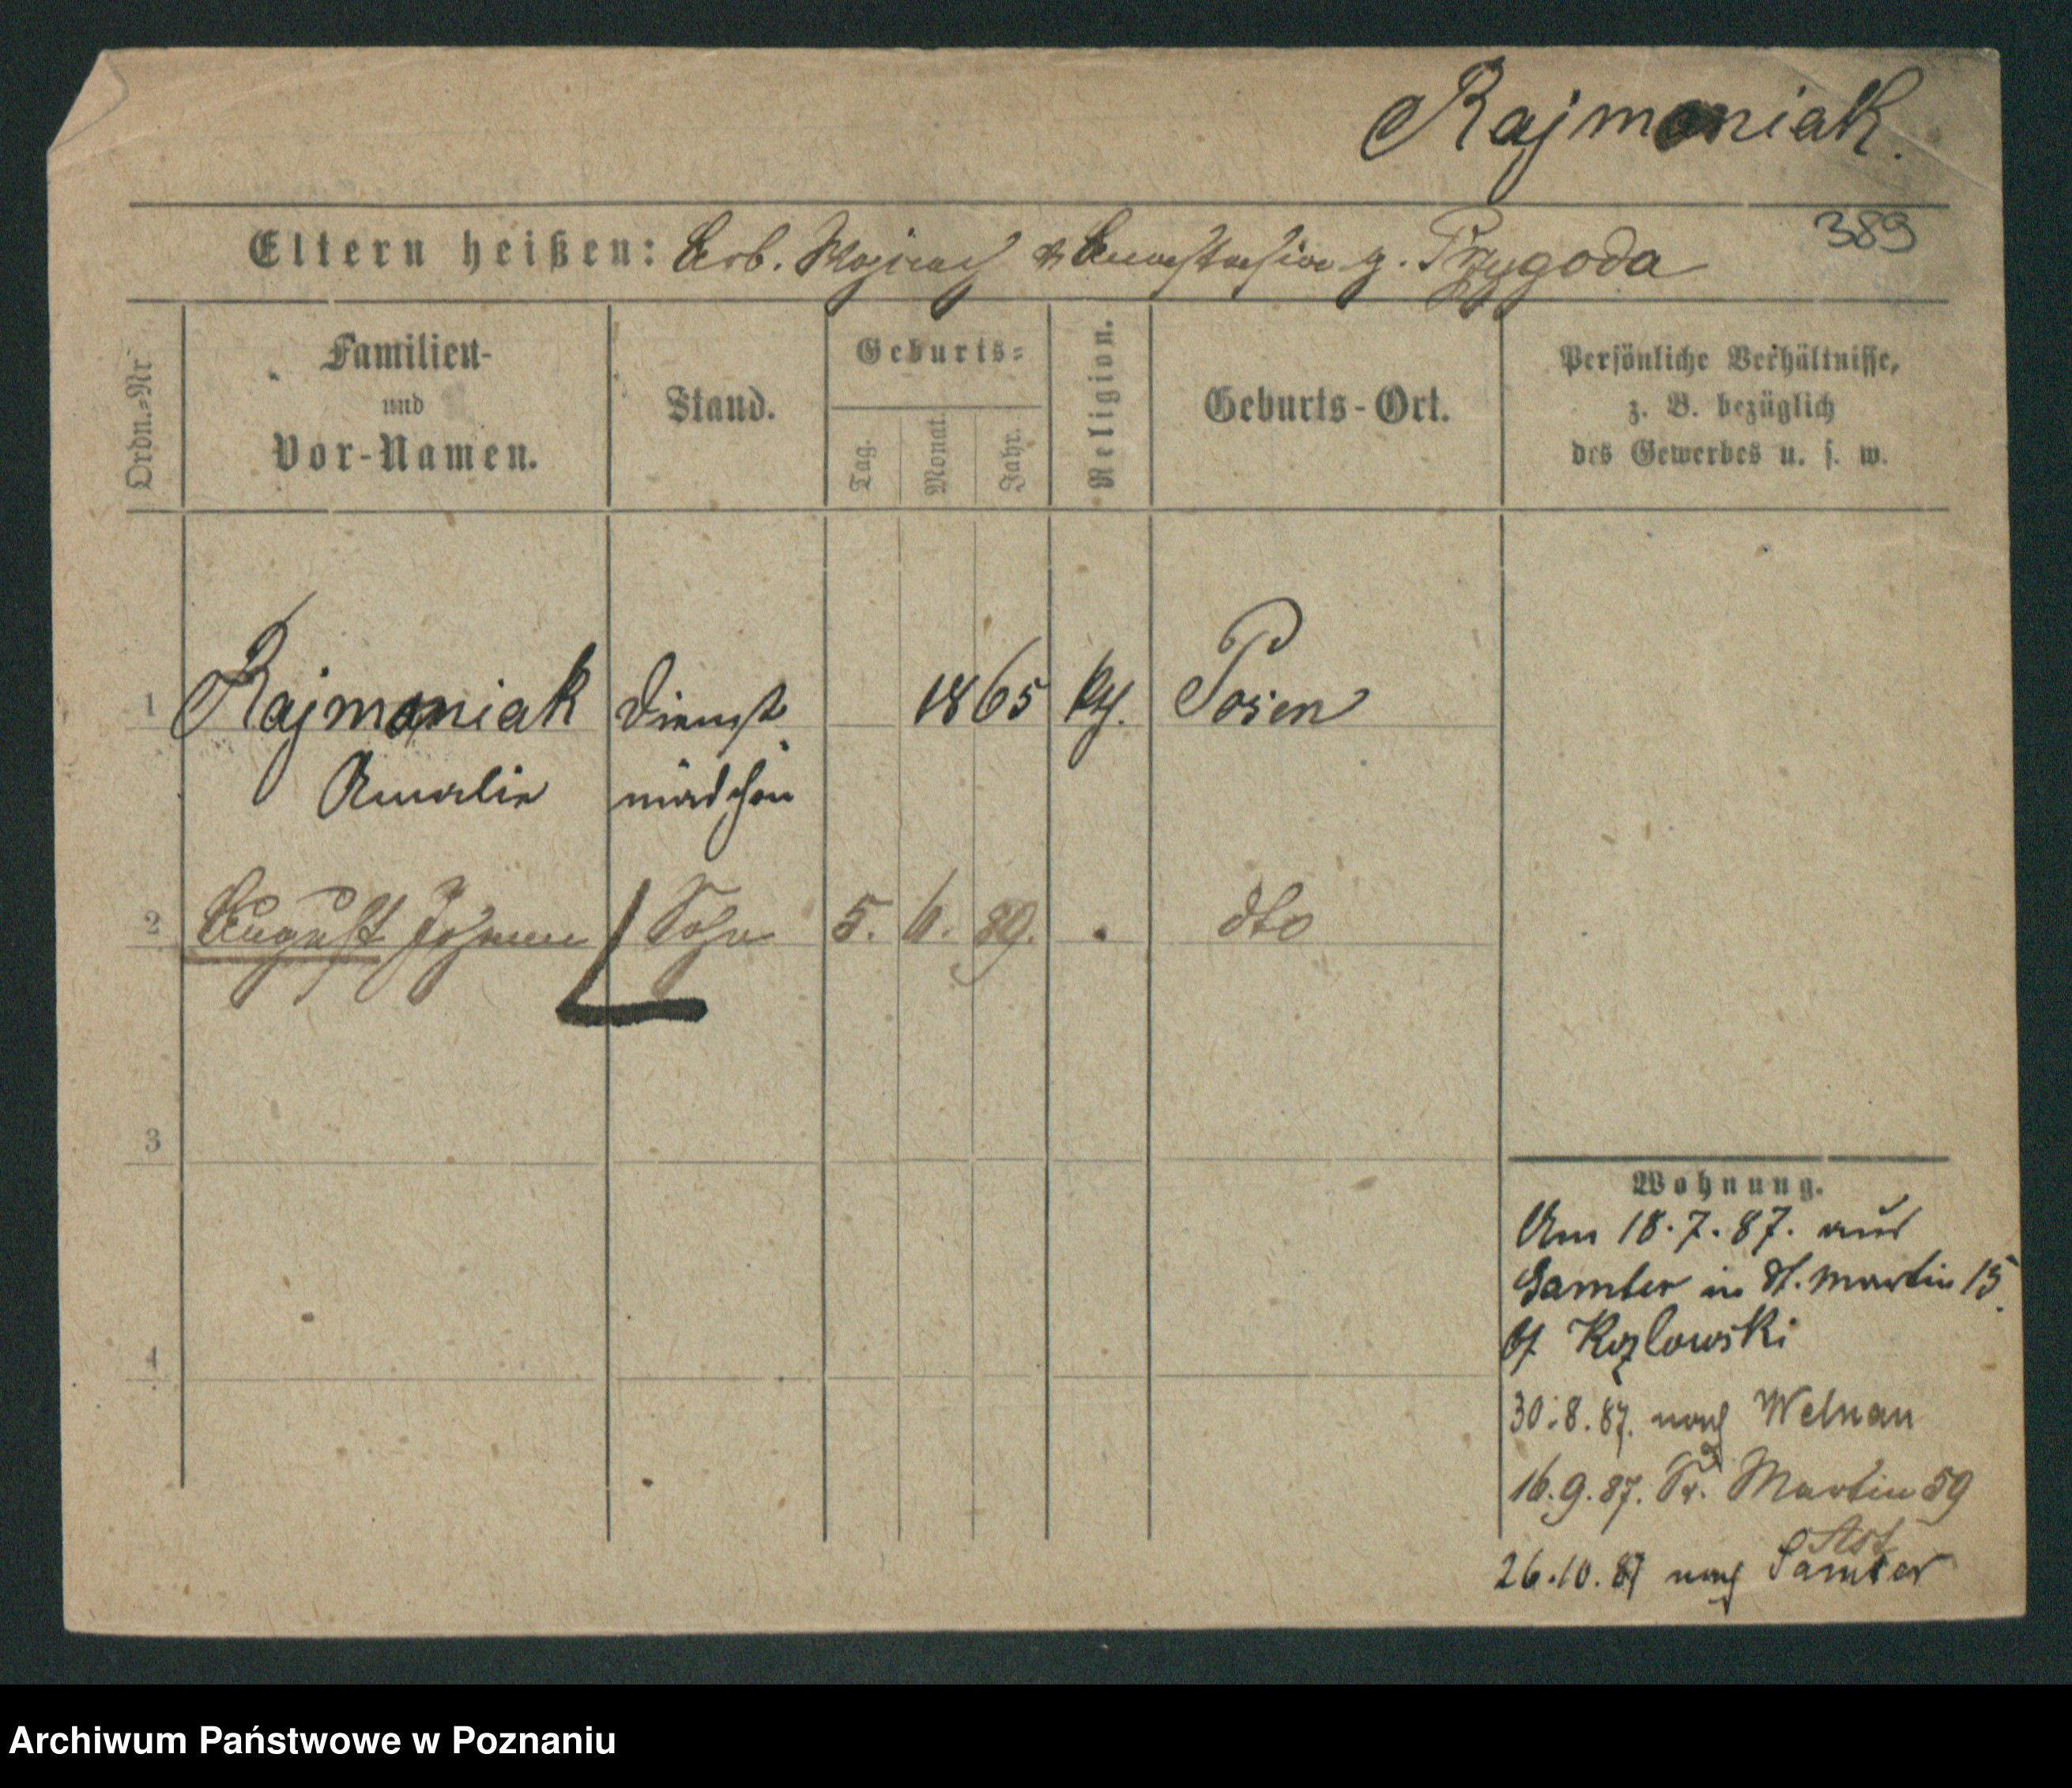 Rajmoniak.
389
Eltern heißen: Arb. & Anastasia g. Przygoda
Ordn.-Nr
Familien-
und
Vor-Namen.
Stand.
Geburts-
Tag.
Monat.
Jahr.
Religion.
Geburts-Ort.
Persönliche Verhältnisse,
z. B. bezüglich
des Gewerbes u. s. w.
1 Rajmoniak Dienst 1865 kth. Posen
Amalie mädchen
2 August Johann Sohn 5. 6. 89. dto
3
4
Wohnung.
Am 18.7.87. aus
Samter in St. Martin 15.
bei Kozlowski
30.8.87. nach Welnau
16.9.87. St. Martin 59
26.10.87 nach Samter
Archiwum Państwowe w Poznaniu